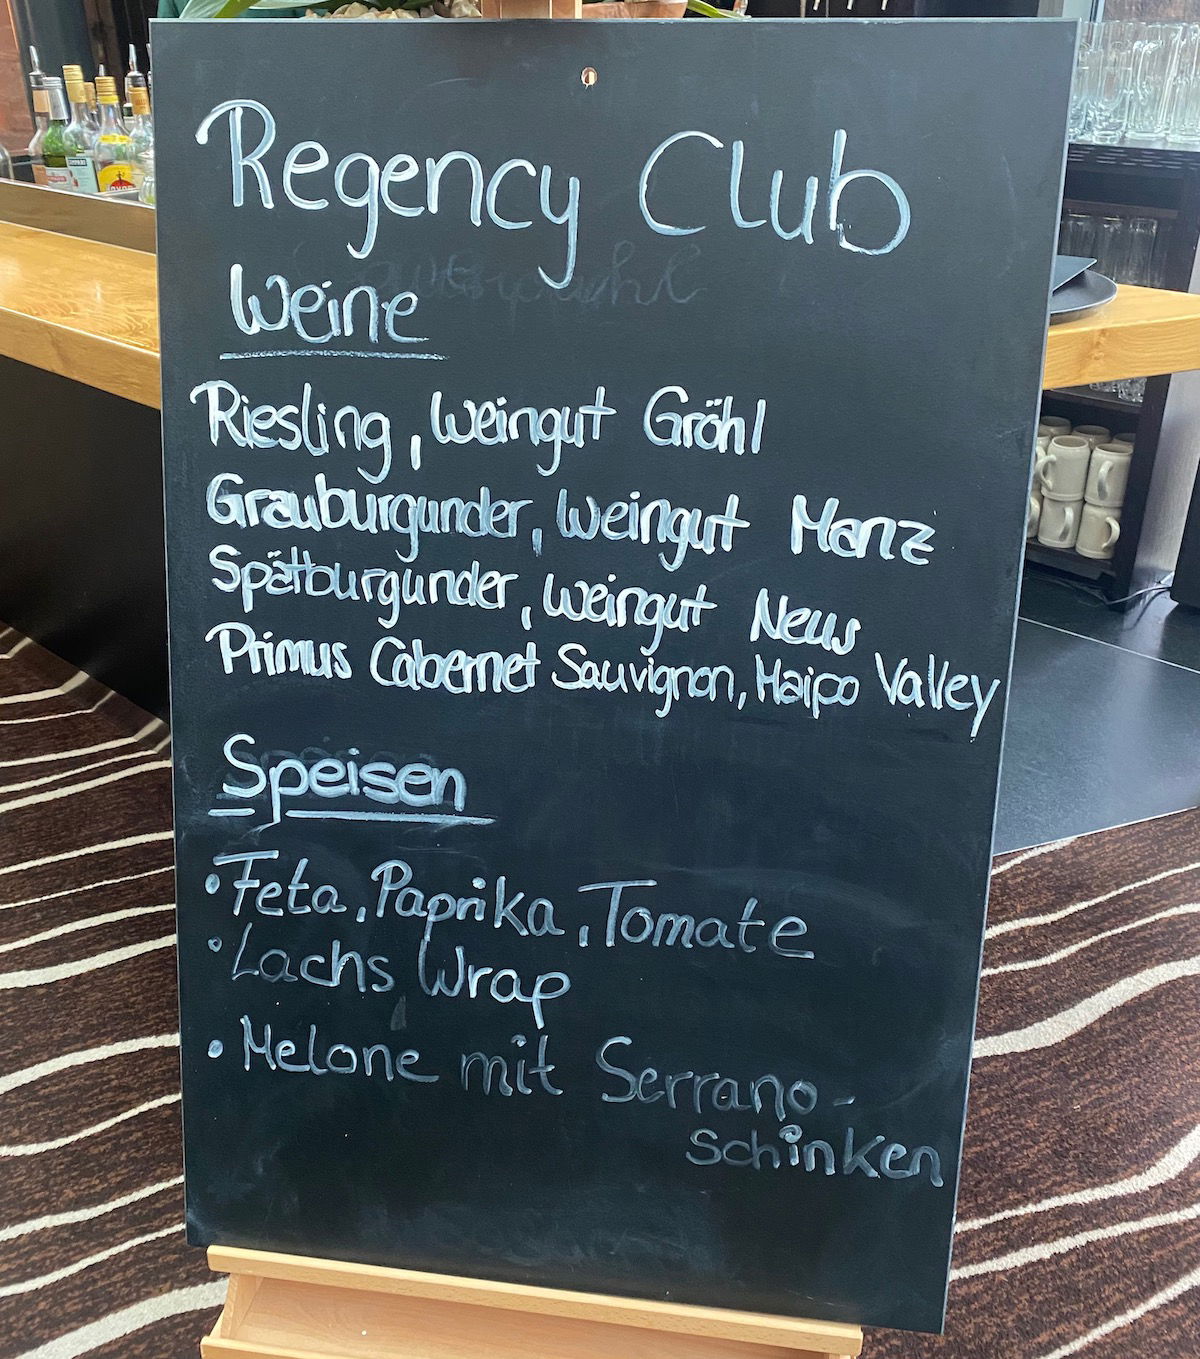 Regency Club
Weine
Riesling, Weingut Gröhl
Grauburgunder, Weingut Manz
Spätburgunder, Weingut Neus
Primus Cabernet Sauvignon, Maipo Valley
Speisen
• Feta, Paprika, Tomate
• Lachs Wrap
• Melone mit Serrano-
schinken